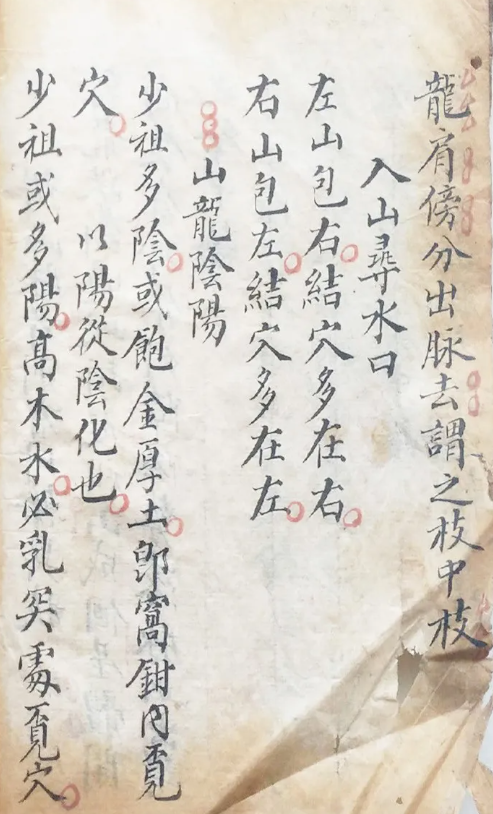 龍肩傍分出脉去謂之枝中枝
入山尋水口
左山包右結穴多在右
右山包左結穴多在左
山龍陰陽
少祖多陰或飽金厚土即窩鉗內覔
穴 以陽從陰化也
少祖或多陽高木水必乳突處覔穴